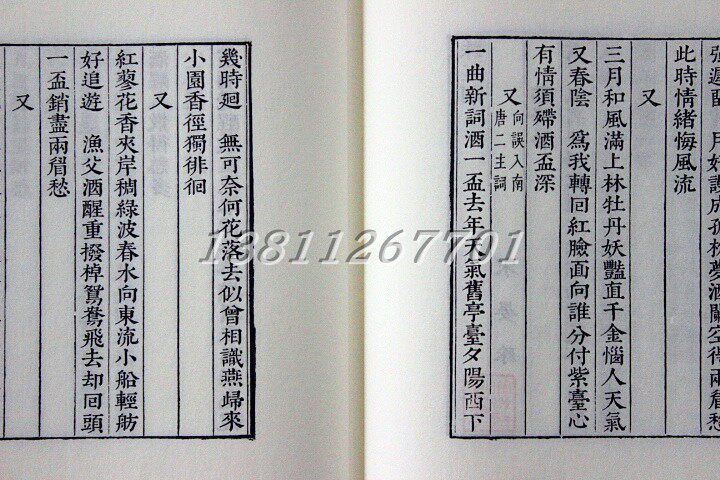 強遲留　月好謾成孤枕夢酒闌空得兩眉愁
此時情緒悔風流
又
三月和風滿上林牡丹妖豔直千金惱人天氣
又春陰　爲我轉回紅臉面向誰分付紫臺心
有情須殢酒盃深
又 向誤入南唐二主詞
一曲新詞酒一盃去年天氣舊亭臺夕陽西下
幾時迴　無可奈何花落去似曾相識燕歸來
小園香徑獨徘徊
又
紅蓼花香夾岸稠綠波春水向東流小船輕舫
好追遊　漁父酒醒重撥棹鴛鴦飛去却回頭
一盃銷盡兩眉愁
又
13811267701